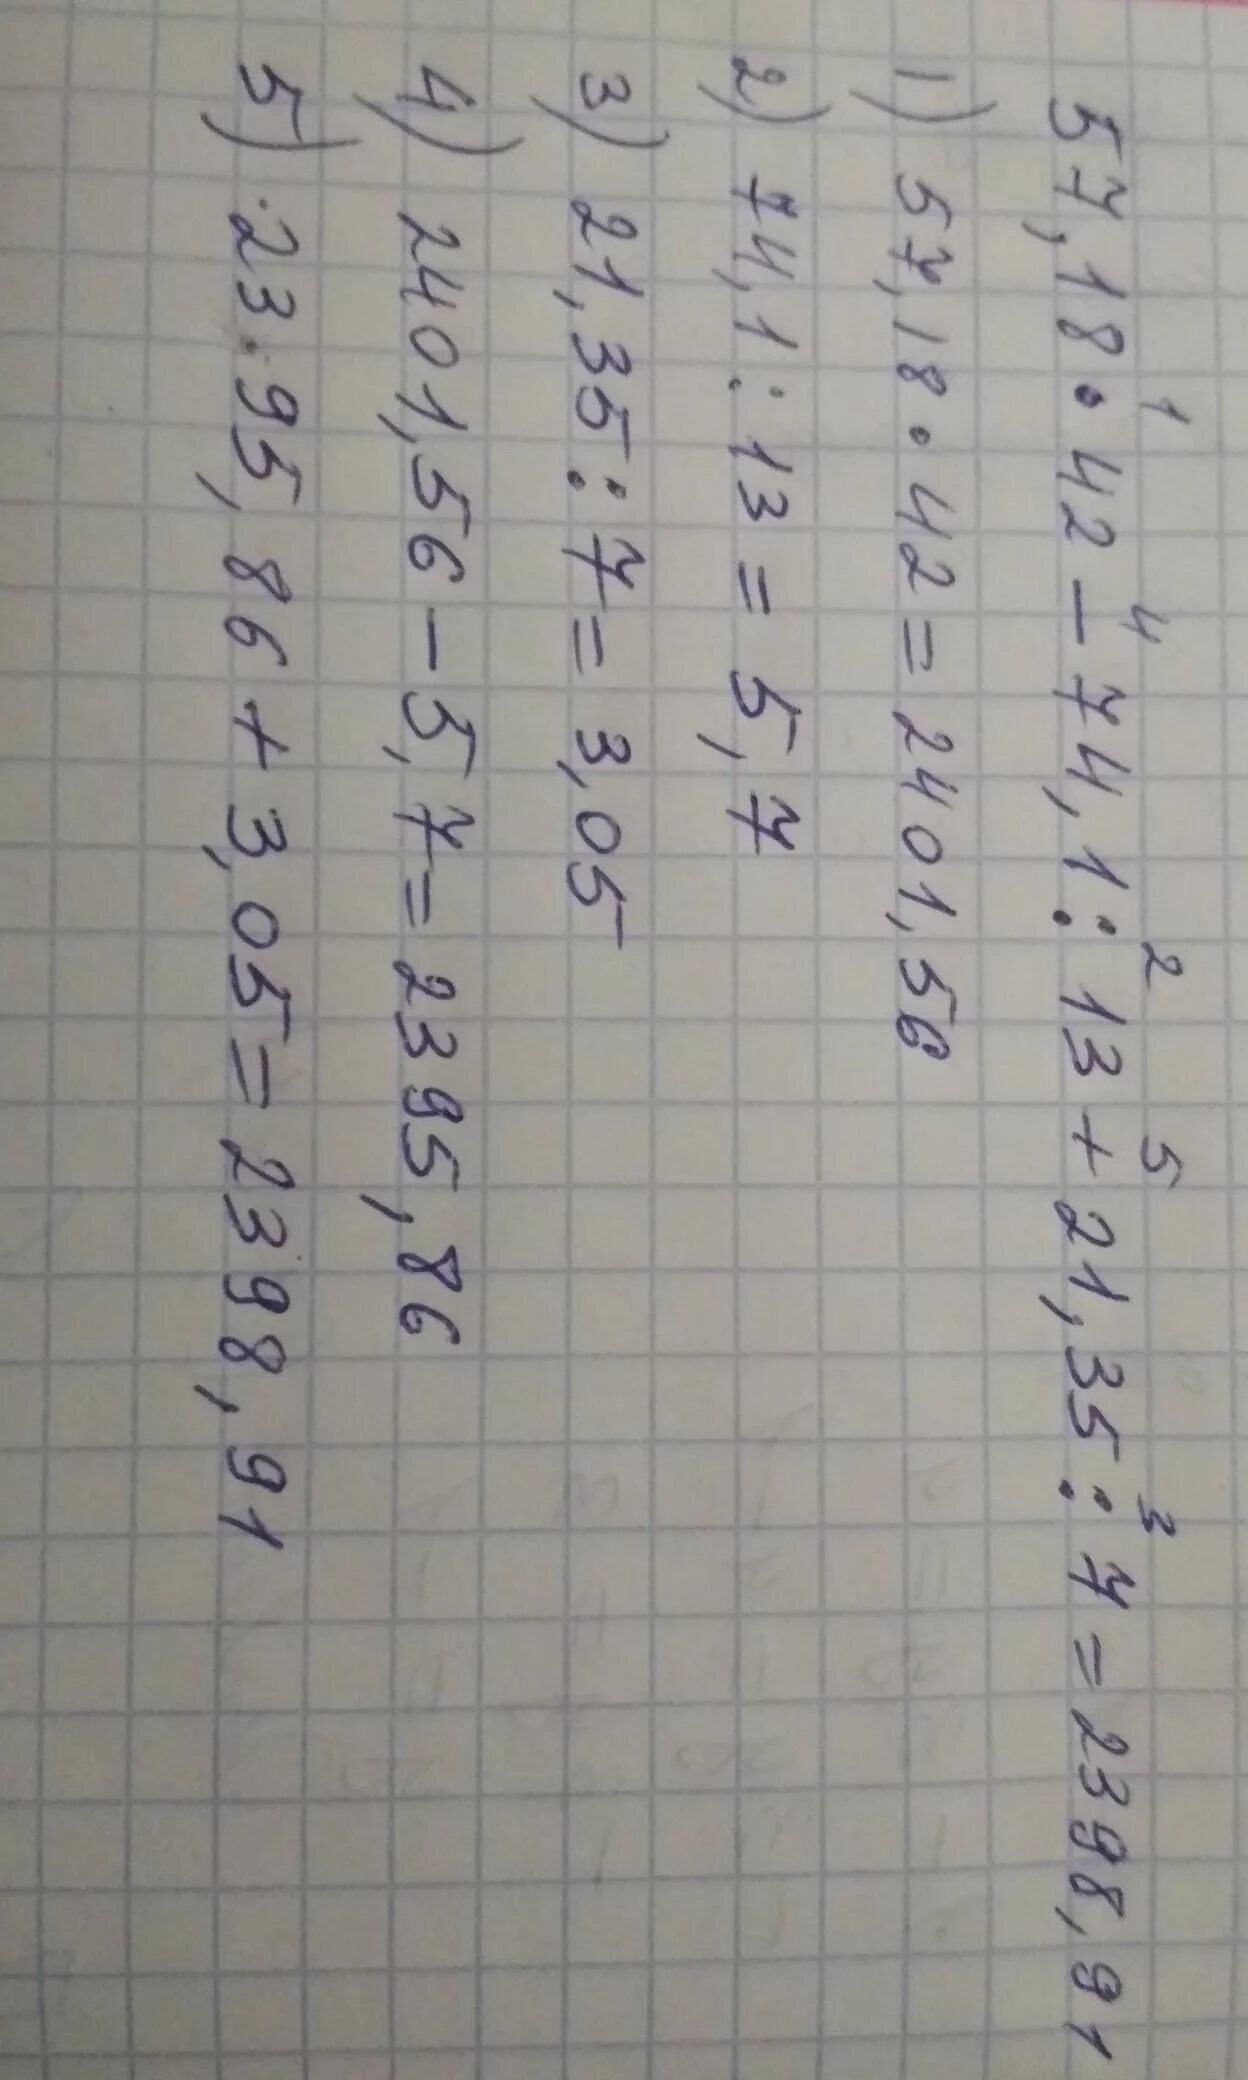 1 4 2 5 3
57,18 · 42 - 74,1 : 13 + 21,35 : 7 = 2398,91
1) 57,18 · 42 = 2401,56
2) 74,1 : 13 = 5,7
3) 21,35 : 7 = 3,05
4) 2401,56 - 5,7 = 2395,86
5) 23.95,86 + 3,05 = 2398,91